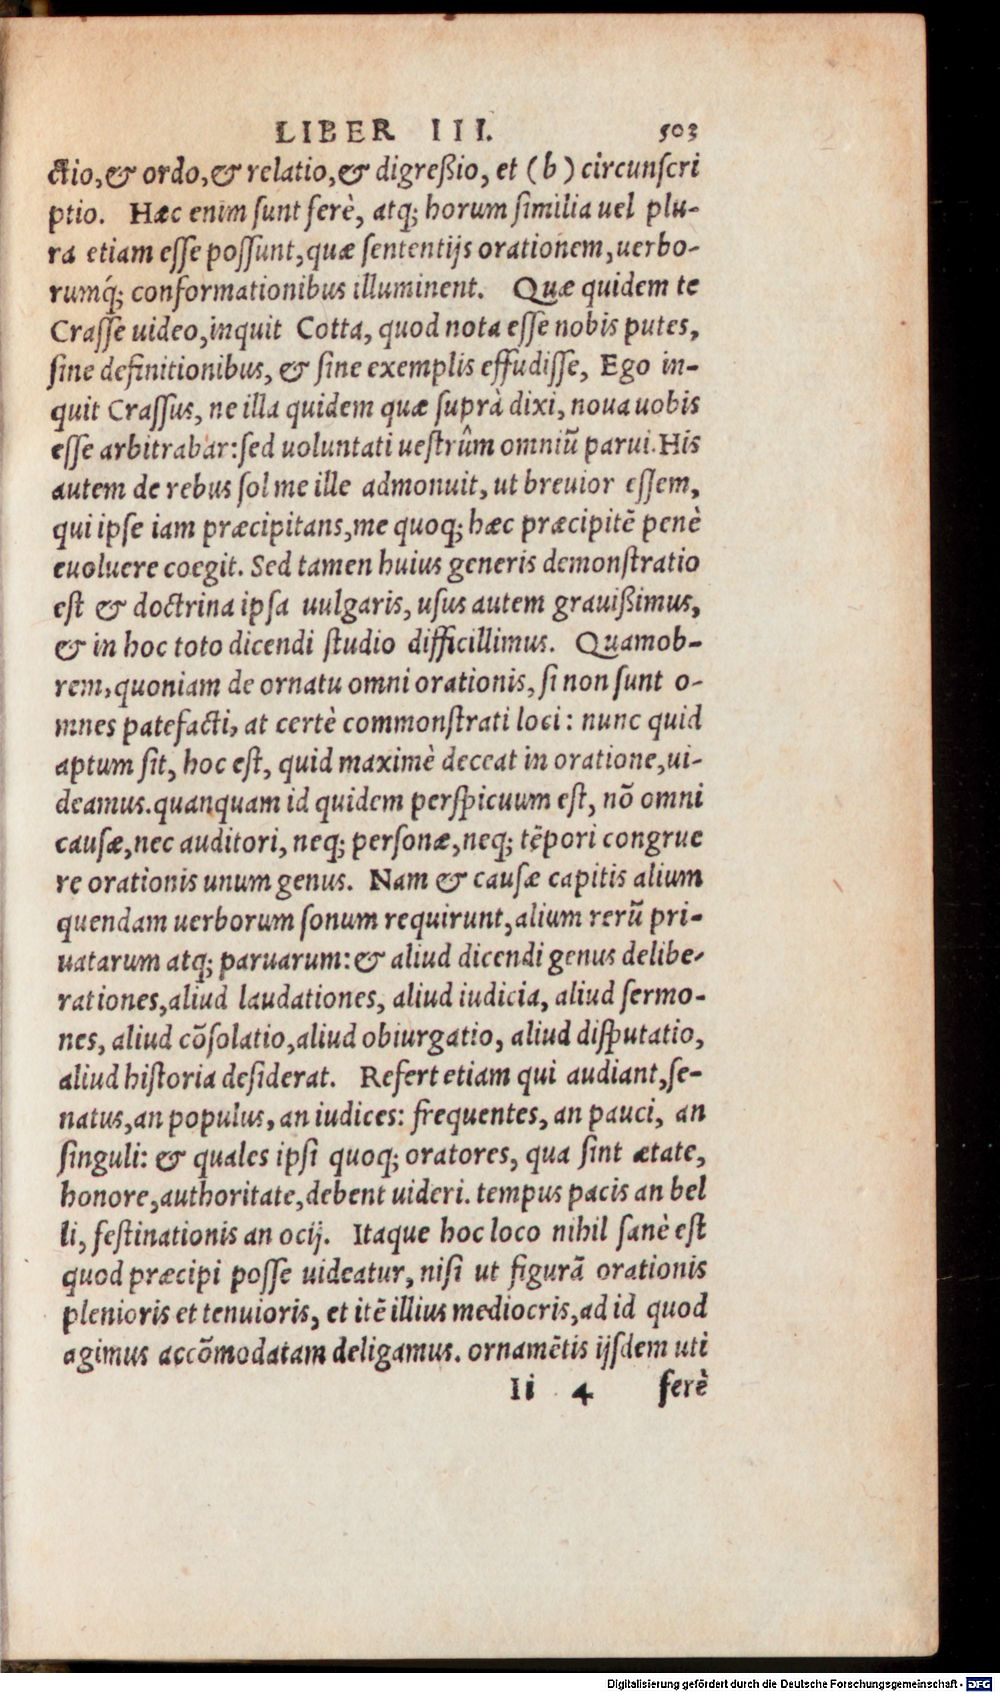 LIBER III. 503
ctio, & ordo, & relatio, & digreßio, et (b) circunſcri
ptio. Hæc enim ſunt ferè, atq; horum ſimilia uel plu-
ra etiam eſſe poſſunt, quæ ſententijs orationem, uerbo-
rumq́; conformationibus illuminent. Quæ quidem te
Craſſe uideo, inquit Cotta, quod nota eſſe nobis putes,
ſine definitionibus, & ſine exemplis effudiſſe, Ego in-
quit Craſſus, ne illa quidem quæ ſuprà dixi, noua uobis
eſſe arbitrabar: ſed uoluntati ueſtrûm omniū parui. His
autem de rebus ſol me ille admonuit, ut breuior eſſem,
qui ipſe iam præcipitans, me quoq; hæc præcipitē penè
euoluere coegit. Sed tamen huius generis demonſtratio
eſt & doctrina ipſa uulgaris, uſus autem grauißimus,
& in hoc toto dicendi ſtudio difficillimus. Quamob-
rem, quoniam de ornatu omni orationis, ſi non ſunt o-
mnes patefacti, at certè commonſtrati loci: nunc quid
aptum ſit, hoc eſt, quid maximè deceat in oratione, ui-
deamus. quanquam id quidem perſpicuum eſt, nō omni
cauſæ, nec auditori, neq; perſonæ, neq; tēpori congrue
re orationis unum genus. Nam & cauſæ capitis alium
quendam uerborum ſonum requirunt, alium rerū pri-
uatarum atq; paruarum: & aliud dicendi genus delibe-
rationes, aliud laudationes, aliud iudicia, aliud ſermo-
nes, aliud cōſolatio, aliud obiurgatio, aliud diſputatio,
aliud hiſtoria deſiderat. Refert etiam qui audiant, ſe-
natus, an populus, an iudices: frequentes, an pauci, an
ſinguli: & quales ipſi quoq; oratores, qua ſint ætate,
honore, authoritate, debent uideri. tempus pacis an bel
li, feſtinationis an ocij. Itaque hoc loco nihil ſanè eſt
quod præcipi poſſe uideatur, niſi ut figurā orationis
plenioris et tenuioris, et itē illius mediocris, ad id quod
agimus accōmodatam deligamus. ornamētis ijſdem uti
Ii 4 ferè
Digitalisierung gefördert durch die Deutsche Forschungsgemeinschaft - DFG